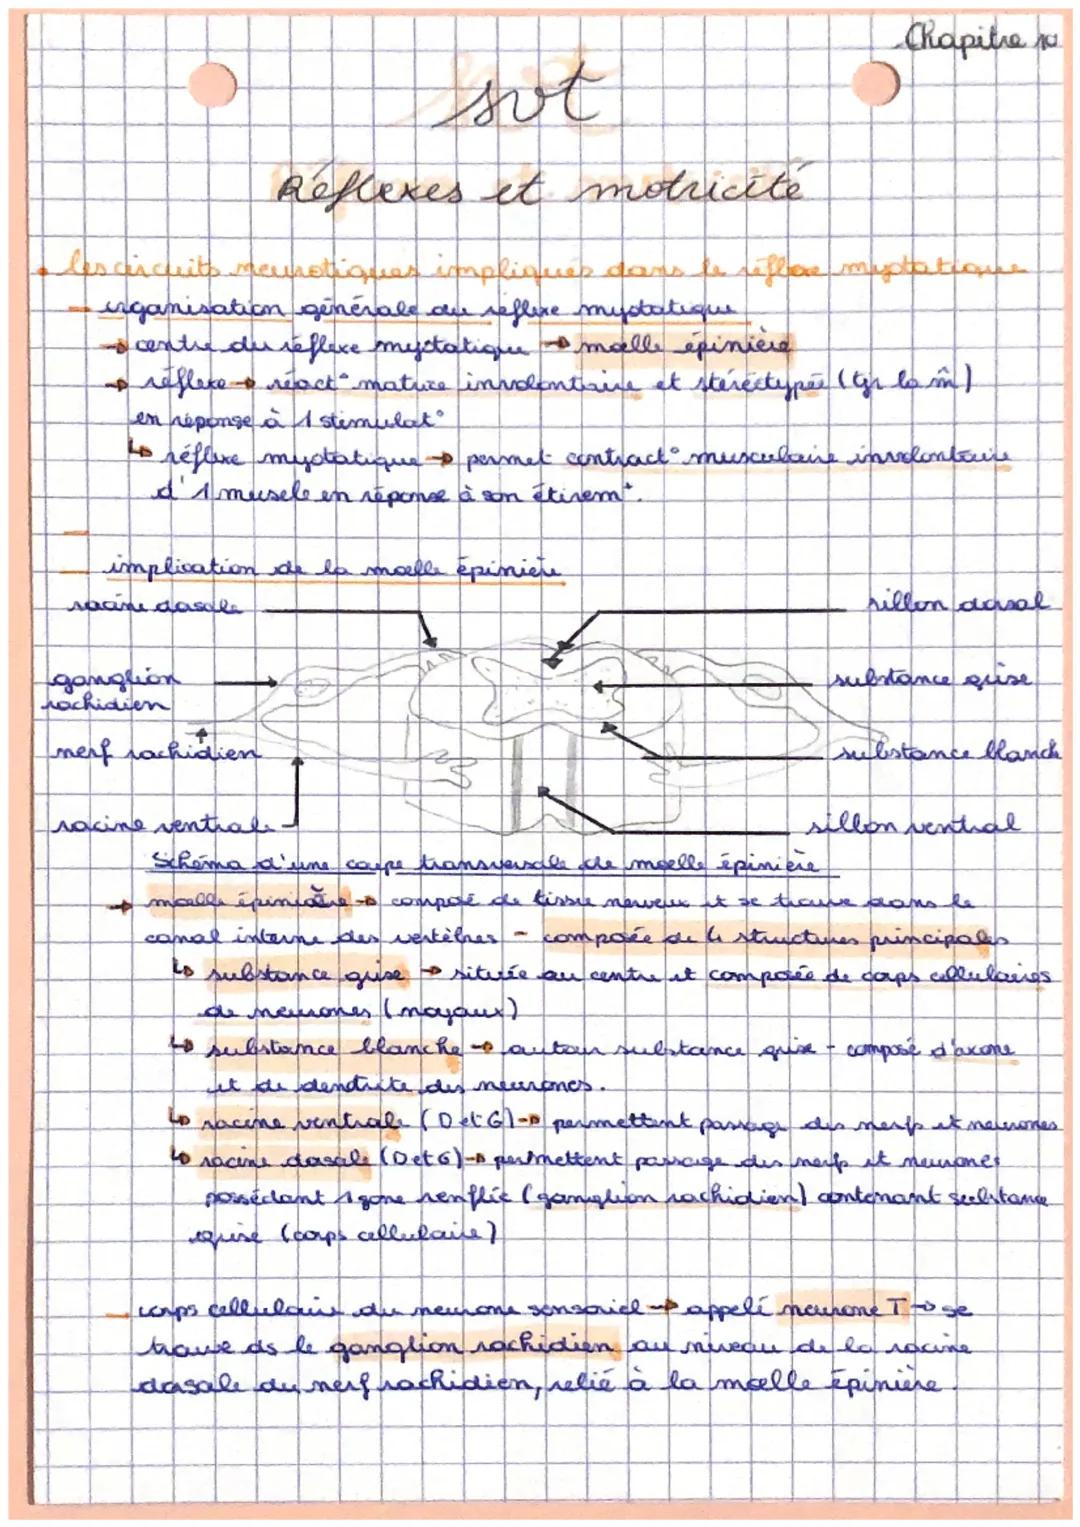 Chapitre 10
svt
Réflexes et motricité
les circuits neurotiques impliqués dans le réflexe myotatique
organisation générale du réflexe myotatique
→ centre du réflexe myotatique → moelle épinière
→ réflexe → réact° motrice involontaire et stéréotypée (tjr la m̂)
en réponse à 1 stimulat°
↳ réflexe myotatique → permet contract° musculaire involontaire
d'1 muscle en réponse à son étiremt.
implication de la moelle épinière
racine dorsale
sillon dorsal
ganglion
rachidien
substance grise
nerf rachidien
substance blanch
racine ventrale
sillon ventral
Schéma d'une coupe transversale de moelle épinière
→ moelle épinière → composé de tissu nerveux et se trouve dans le
canal interne des vertèbres - composée de 4 structures principales
↳ substance grise → située au centre et composée de corps cellulaires
de neurones (noyaux)
↳ substance blanche → autour substance grise - composé d'axone
et de dendrite des neurones.
↳ racine ventrale (D et G) → permettent passage des nerfs et neurones
↳ racine dorsale (D et G) → permettent passage des nerfs et neurones
possédant 1 zone renflée (ganglion rachidien) contenant substance
grise (corps cellulaire)
corps cellulaire du neurone sensoriel → appelé neurone T → se
trouve ds le ganglion rachidien au niveau de la racine
dorsale du nerf rachidien, relié à la moelle épinière.